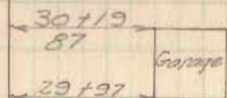 30+19
87
Garage
29+97